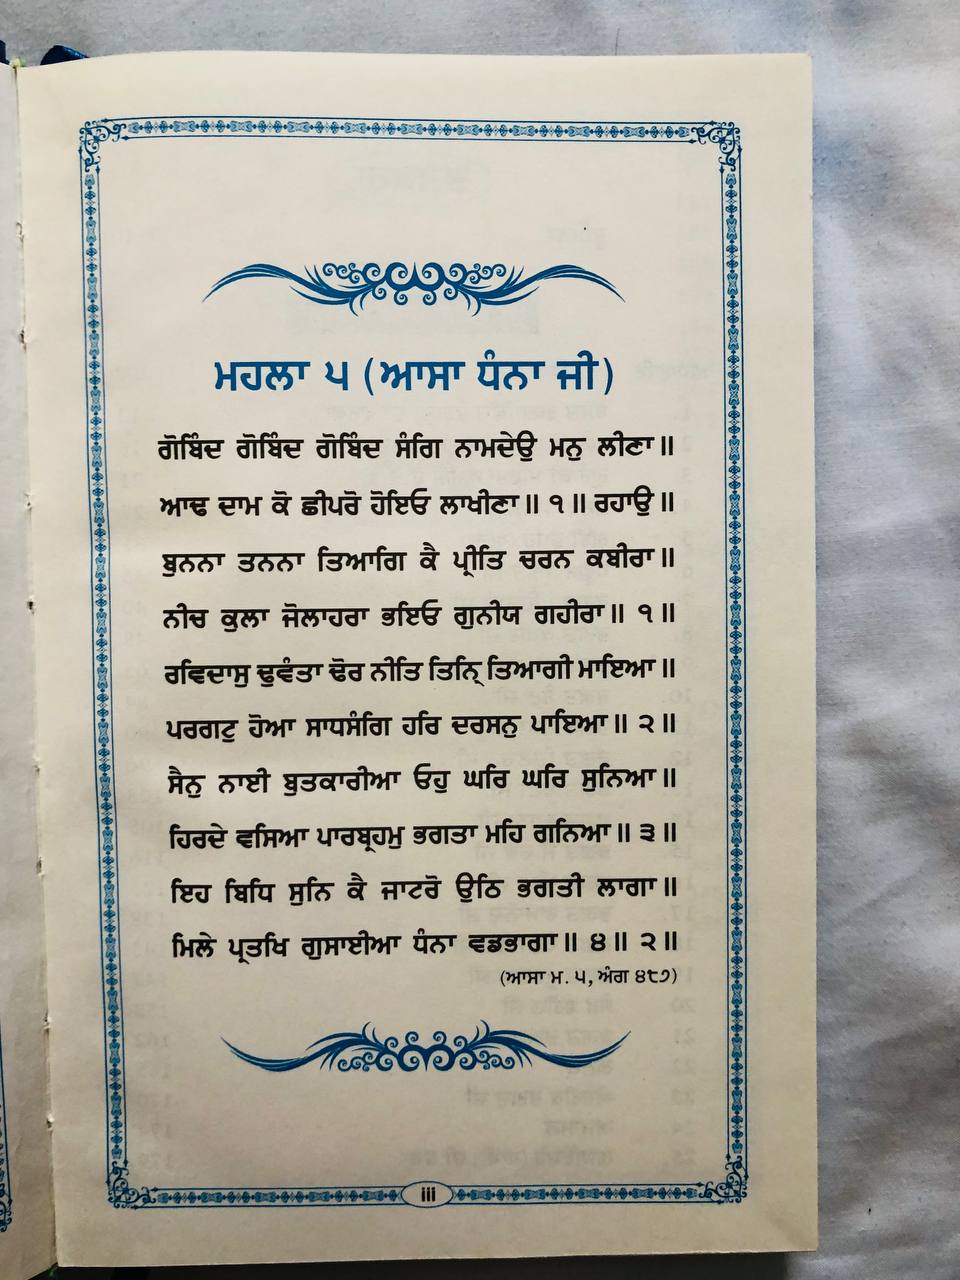 ਮਹਲਾ ੫ (ਆਸਾ ਧੰਨਾ ਜੀ)
ਗੋਬਿੰਦ ਗੋਬਿੰਦ ਗੋਬਿੰਦ ਸੰਗਿ ਨਾਮਦੇਉ ਮਨੁ ਲੀਣਾ॥
ਆਢ ਦਾਮ ਕੋ ਛੀਪਰੋ ਹੋਇਓ ਲਾਖੀਣਾ॥ ੧॥ ਰਹਾਉ॥
ਬੁਨਨਾ ਤਨਨਾ ਤਿਆਗਿ ਕੈ ਪ੍ਰੀਤਿ ਚਰਨ ਕਬੀਰਾ॥
ਨੀਚ ਕੁਲਾ ਜੋਲਾਹਰਾ ਭਇਓ ਗੁਨੀਯ ਗਹੀਰਾ॥ ੧॥
ਰਵਿਦਾਸੁ ਢੁਵੰਤਾ ਢੋਰ ਨੀਤਿ ਤਿਨਿ੍ ਤਿਆਗੀ ਮਾਇਆ॥
ਪਰਗਟੁ ਹੋਆ ਸਾਧਸੰਗਿ ਹਰਿ ਦਰਸਨੁ ਪਾਇਆ॥ ੨॥
ਸੈਨੁ ਨਾਈ ਬੁਤਕਾਰੀਆ ਓਹੁ ਘਰਿ ਘਰਿ ਸੁਨਿਆ॥
ਹਿਰਦੇ ਵਸਿਆ ਪਾਰਬ੍ਰਹਮੁ ਭਗਤਾ ਮਹਿ ਗਨਿਆ॥ ੩॥
ਇਹ ਬਿਧਿ ਸੁਨਿ ਕੈ ਜਾਟਰੋ ਉਠਿ ਭਗਤੀ ਲਾਗਾ॥
ਮਿਲੇ ਪ੍ਰਤਖਿ ਗੁਸਾਈਆ ਧੰਨਾ ਵਡਭਾਗਾ॥ ੪॥ ੨॥
(ਆਸਾ ਮ. ੫, ਅੰਗ ੪੮੭)
iii